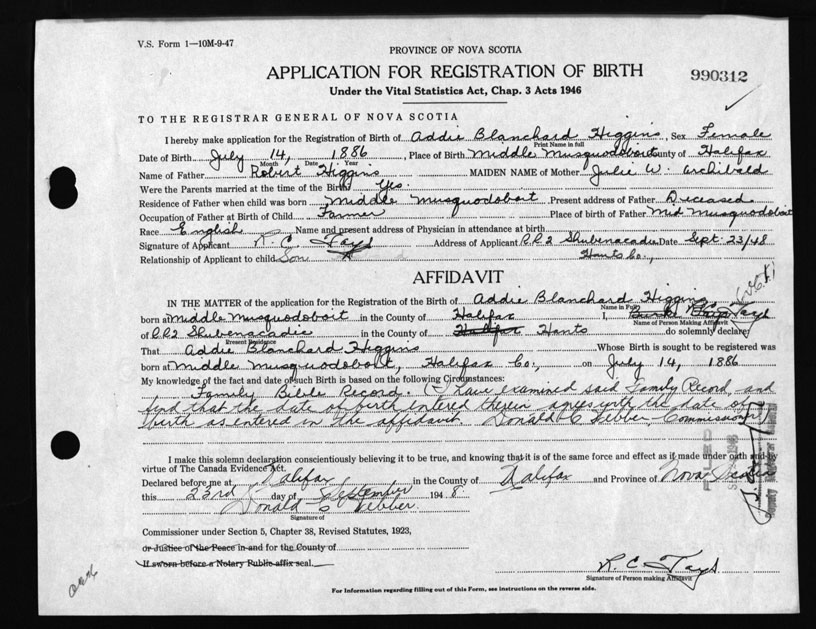 V.S. Form 1—10M-9-47
PROVINCE OF NOVA SCOTIA
APPLICATION FOR REGISTRATION OF BIRTH
990312
Under the Vital Statistics Act, Chap. 3 Acts 1946
TO THE REGISTRAR GENERAL OF NOVA SCOTIA
I hereby make application for the Registration of Birth of Addie Blanchard Higgins, Sex Female
Print Name in full
Date of Birth July 14, 1886, Place of Birth Middle Musquodoboit County of Halifax
Month Date Year
Name of Father Robert Higgins MAIDEN NAME of Mother Julie W. Archibald
Were the Parents married at the time of the Birth Yes.
Residence of Father when child was born Middle Musquodoboit Present address of Father Deceased
Occupation of Father at Birth of Child Farmer Place of birth of Father Mid Musquodoboit
Race English Name and present address of Physician in attendance at birth
Signature of Applicant R. C. Tays Address of Applicant R.R.2 Shubenacadie Date Sept. 23/48
Relationship of Applicant to child Son Hants Co.,
AFFIDAVIT
IN THE MATTER of the application for the Registration of the Birth of Addie Blanchard Higgins
Name in Full
born at Middle Musquodoboit in the County of Halifax I, R.C. Tays
Name of Person Making Affidavit
of R.R.2 Shubenacadie in the County of Halifax Hants do solemnly declare
Present Residence
That Addie Blanchard Higgins Whose Birth is sought to be registered was
born at Middle Musquodoboit, Halifax Co., on July 14, 1886
My knowledge of the fact and date of such Birth is based on the following Circumstances:
Family Bible Record. (I have examined said Family Record and
find that the date of birth entered therein agrees with the date of
birth as entered in the affidavit. Donald C Webber - Commissioner)
I make this solemn declaration conscientiously believing it to be true, and knowing that it is of the same force and effect as if made under oath and by
virtue of The Canada Evidence Act.
Declared before me at Halifax in the County of Halifax and Province of Nova Scotia
this 23rd day of September 1948.
Donald C Webber
Signature of
Commissioner under Section 5, Chapter 38, Revised Statutes, 1923,
or Justice of the Peace in and for the County of
If sworn before a Notary Public affix seal.
R. C. Tays
Signature of Person making Affidavit
For Information regarding filling out of this Form, see instructions on the reverse side.